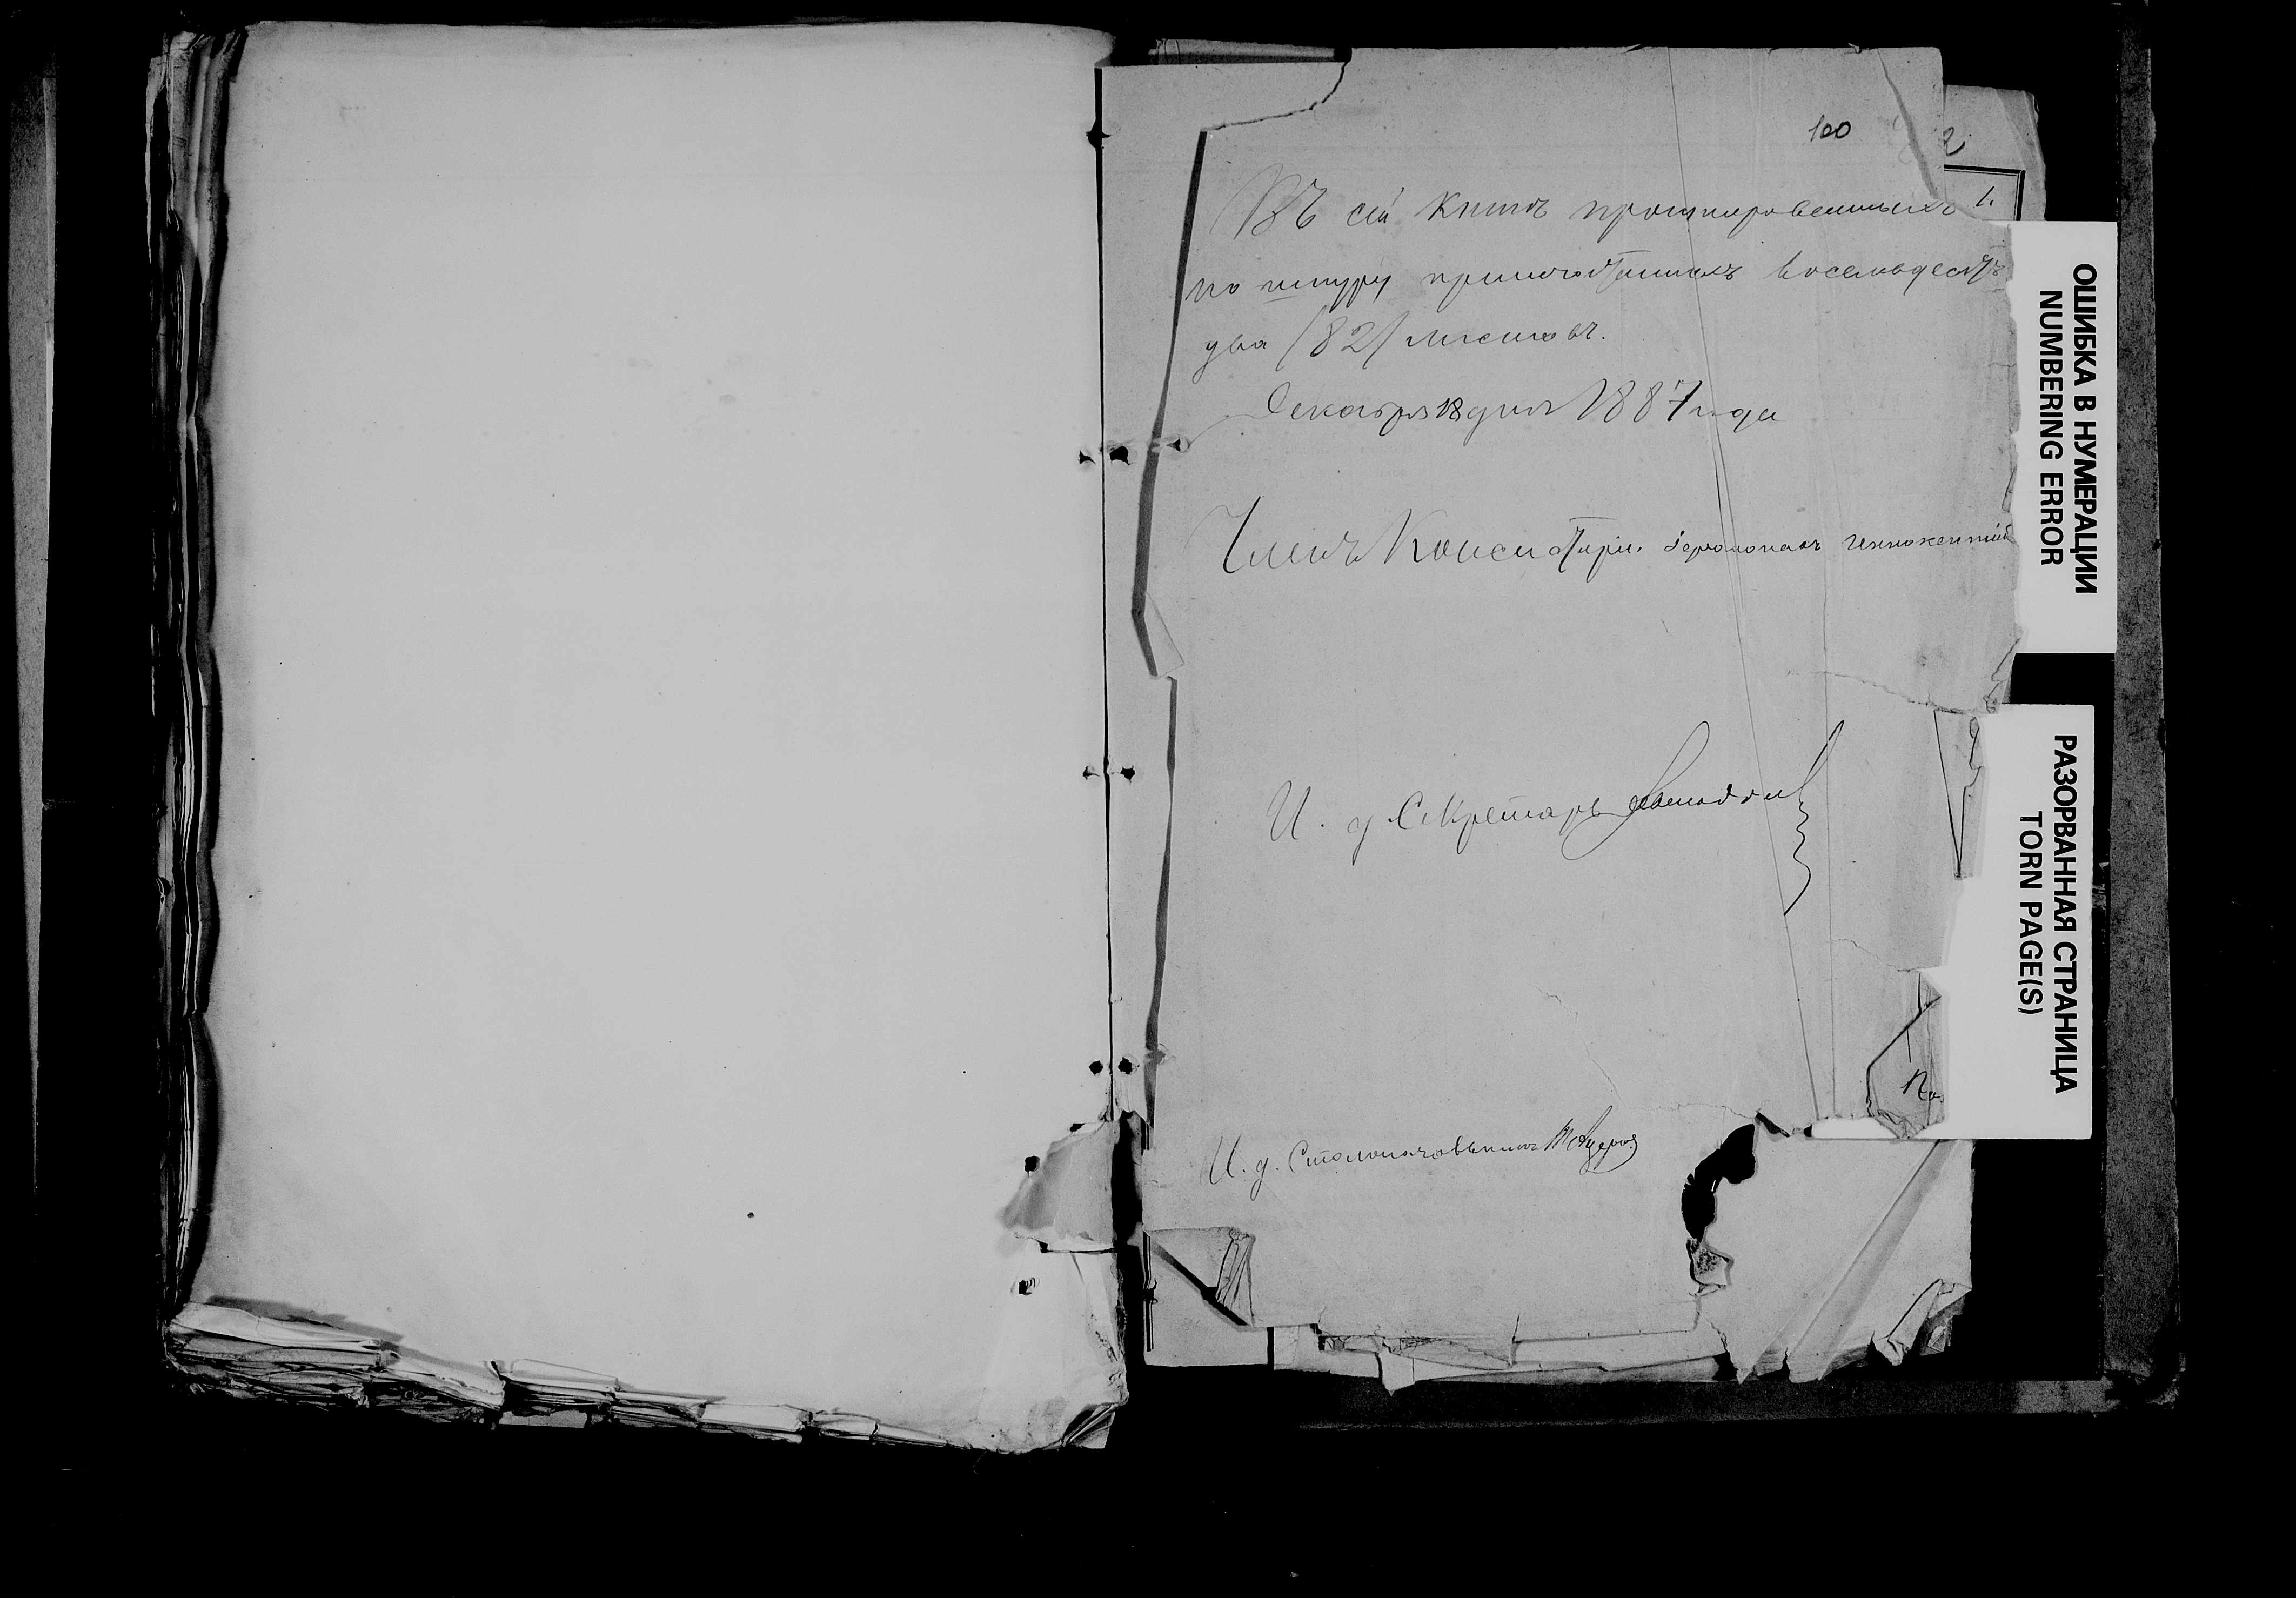 100
2
1.
Въ сей книгѣ прошнурованныхъ
по шнуру припечатанныхъ восемьдесятъ
два /82/ листовъ.
Декабря 18 дня 1887 года
Членъ Консисторіи. Іеромонахъ Иннокентій
И. д Секретарь
И. д. Столоначальника
ОШИБКА В НУМЕРАЦИИ
NUMBERING ERROR
РАЗОРВАННАЯ СТРАНИЦА
TORN PAGE(S)